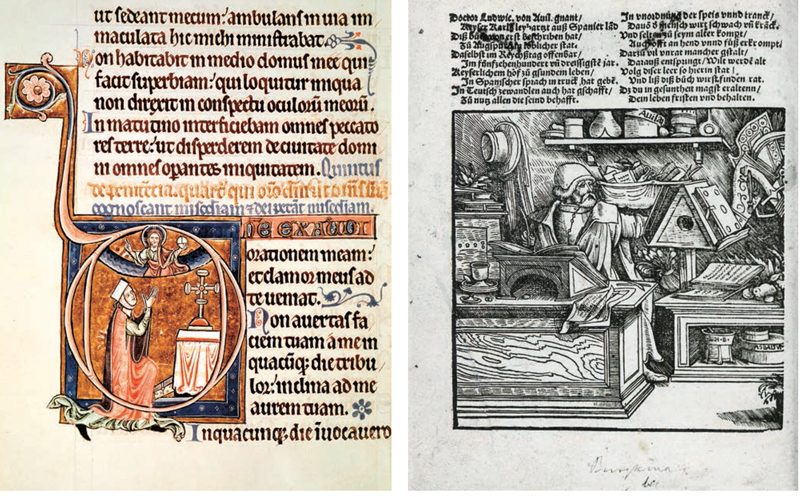 ut sedeant mecum: ambulans in uia im
maculata hic michi ministrabat.
Non habitabit in medio domus mee qui
facit superbiam: qui loquitur iniqua
non direxit in conspectu oculorū meorū.
In matutino interficiebam omnes peccato
res terre: ut disperderem de ciuitate domi
ni omnes operantes iniquitatem. Quintus
de penitētia.
cognoscant
EXAUDI
orationem meam:
et clamor meus ad
te ueniat.
Non auertas fa
ciem tuam a me in
quacūq; die tribu
lor: inclina ad me
aurem tuam.
In quacunq; die īuocauero
Doctor Ludwic. von Auil. gnant/
Keyser Karls ley-artzt auß Spanier lād
Diß bůch hat erst beschriben hat/
Zů Augspurg in löblicher stat.
Daselbst im Reychßtag offenbar/
Im fünfzehenhundert vñ dreissigstē jar.
Keyserlichem hof zů gsunden leben/
In Spanischer sprach in truck hat gebē.
In Teutsch zewandlen auch hat gschafft/
Zů nutz allen die seind behafft.
In vnordnung der speis vnnd tranck/
Dauō d mensch wirt schwach vñ kräck.
Vnd selten zů seym alter kompt/
Auch offt an hend vnnd füß erkrompt/
Darzů vil vnrat mancher gstalt/
Darauß entspringt/ Wilt werdē alt
Volg diser leer so hierin stat/
Vnd liß diß bůch wirst finden rat.
Dz du in gesuntheit magst eraltenn/
Dem leben fristen vnd behalten.
Auila
H·B·